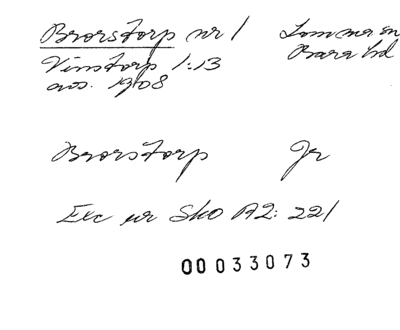 Brorstorp nr 1 Lomma sn
Vinstorp 1:13 Bara hd
avs. 1908
Brorstorp Jr
Exc ur Sko A2: 221
00033073